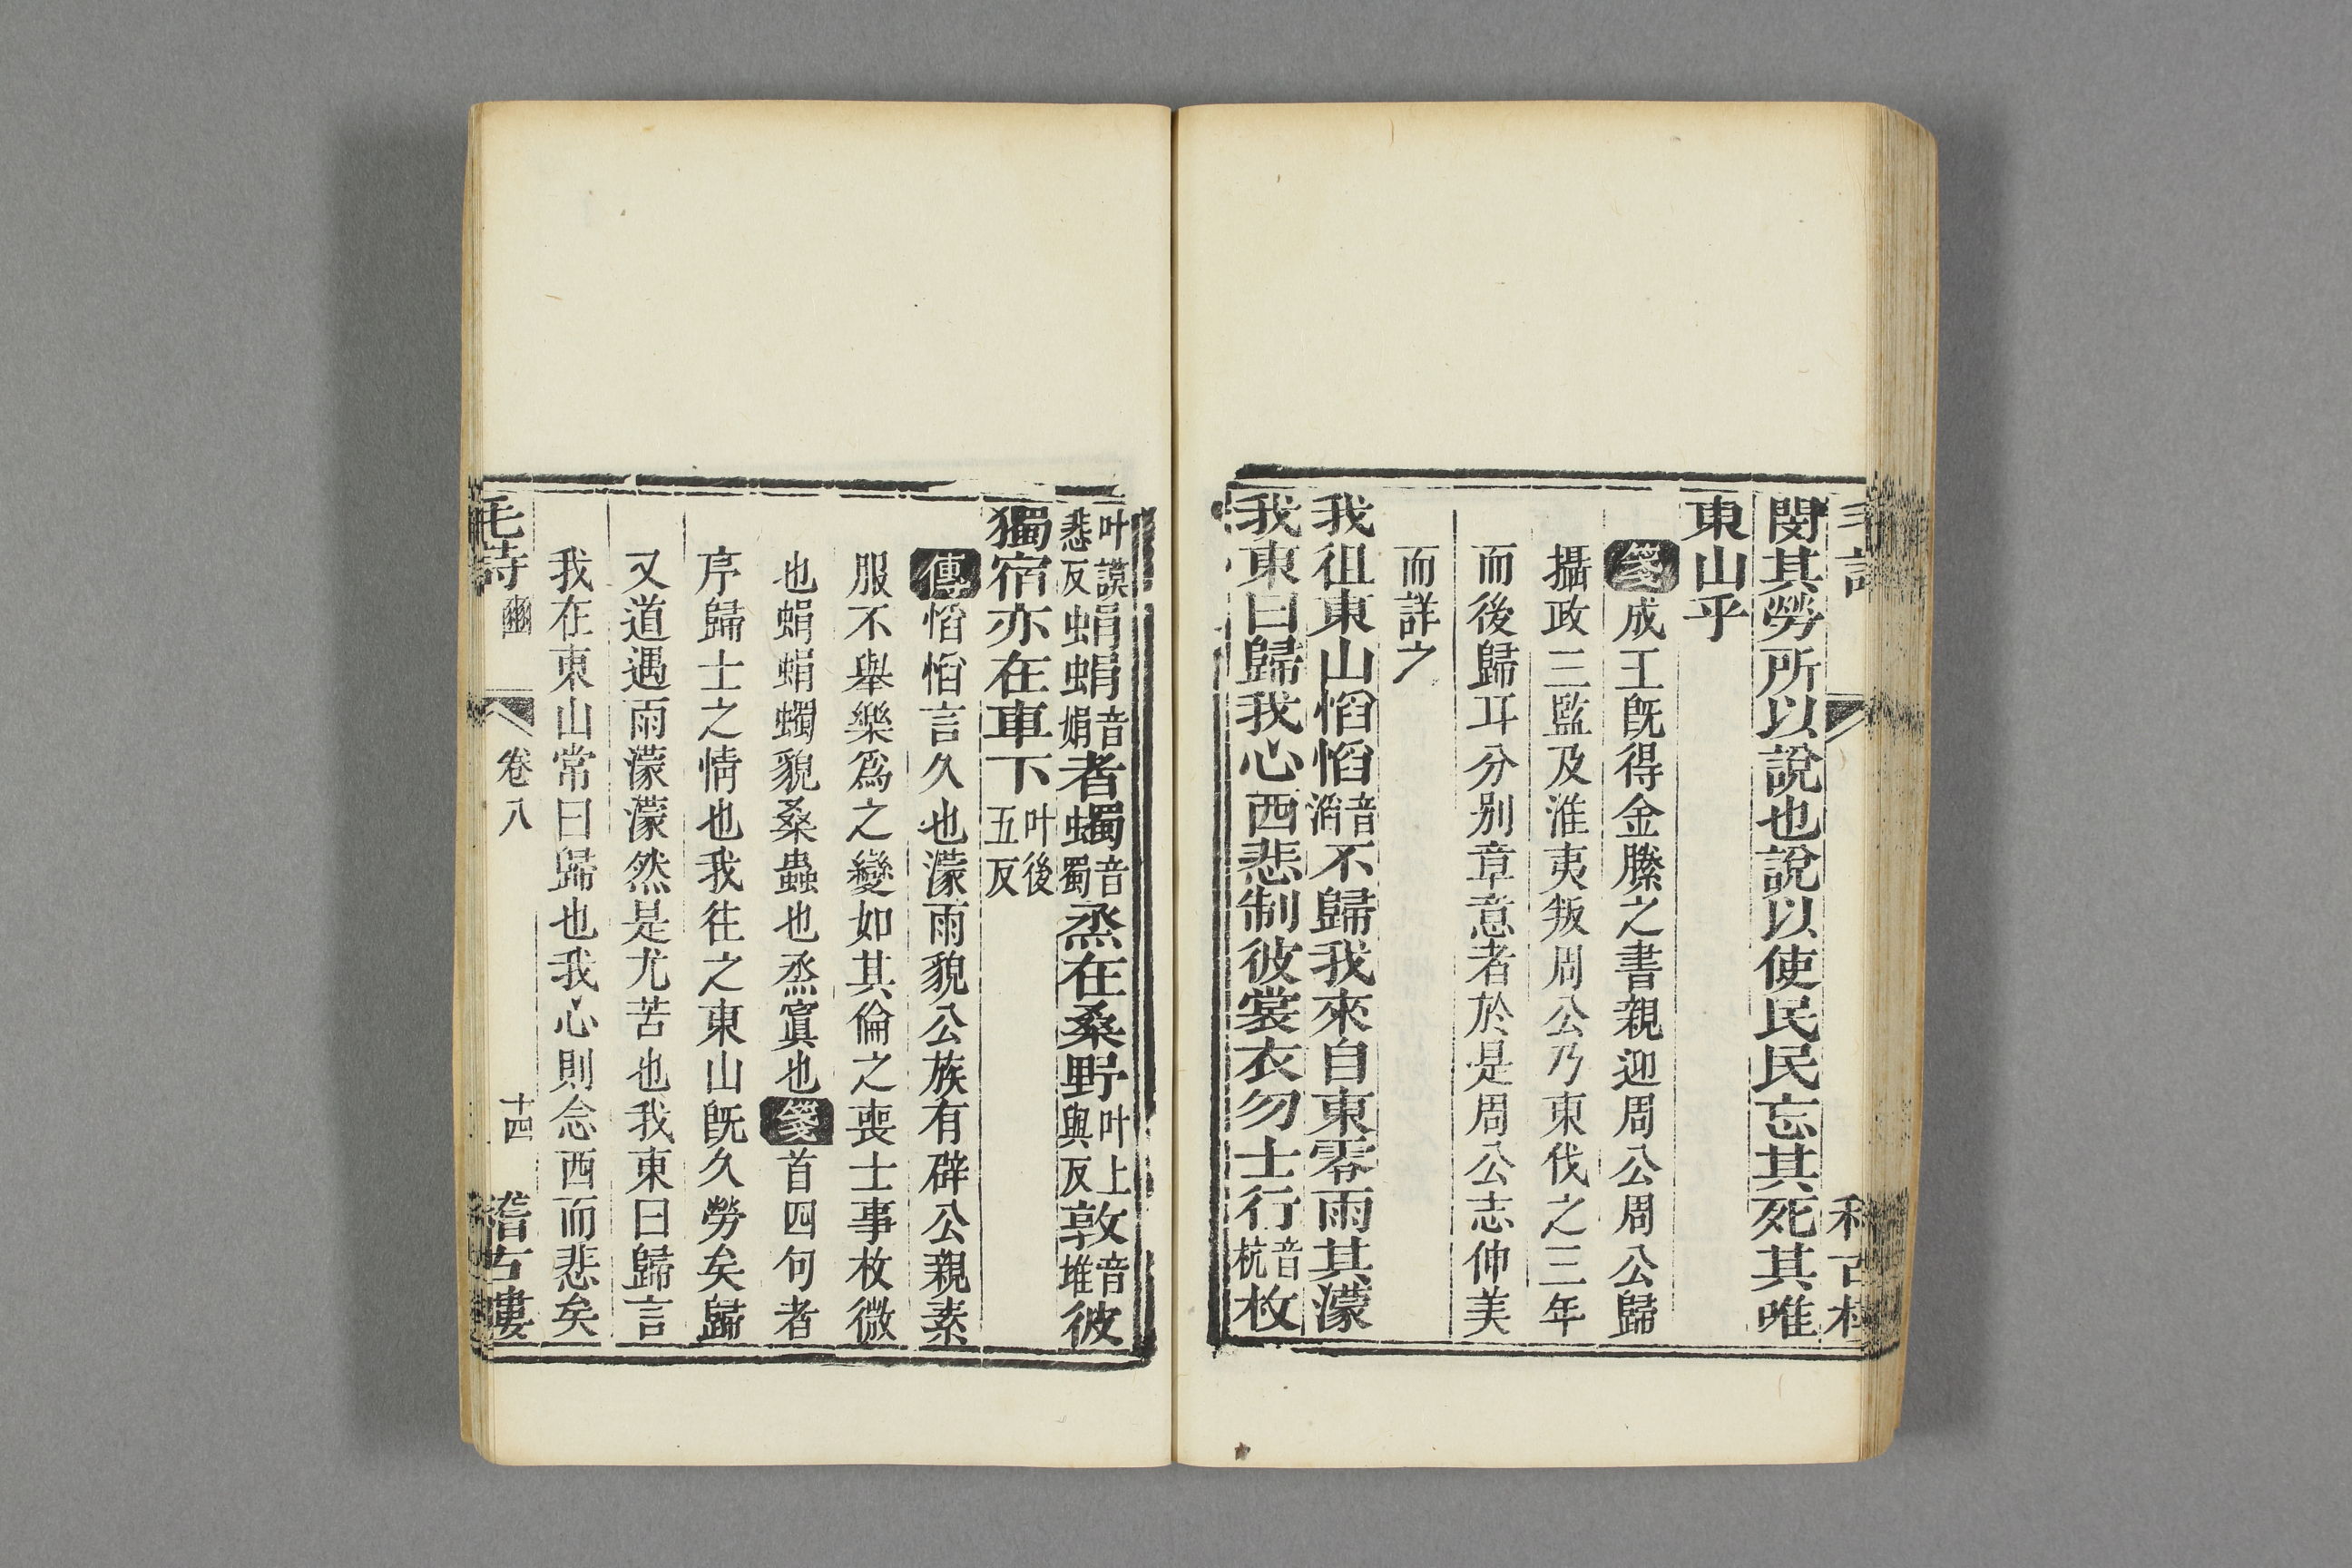 閔其勞所以說也說以使民民忘其死其唯
東山乎
箋成王旣得金縢之書親迎周公周公歸
攝政三監及淮夷叛周公乃東伐之三年
而後歸耳分别章意者於是周公志伸美
而詳之
我徂東山慆慆音滔不歸我來自東零雨其濛
我東曰歸我心西悲制彼裳衣勿士行音杭枚
叶謨悲反蜎蜎音娟者蠋音蜀烝在桑野叶上與反敦音堆彼
獨宿亦在車下叶後五反
傳慆慆言久也濛雨貌公族有辟公親素
服不舉樂爲之變如其倫之喪士事枚微
也蜎蜎蠋貌桑蟲也烝寘也箋首四句者
序歸士之情也我往之東山旣久勞矣歸
又道遇雨濛濛然是尤苦也我東曰歸言
我在東山常曰歸也我心則念西而悲矣
毛詩 豳 卷八 十四 稽古樓